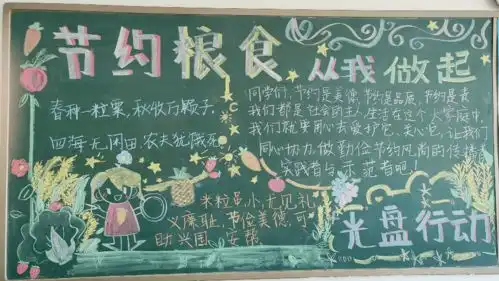 节约粮食 从我做起
春种一粒粟，秋收万颗子。
四海无闲田，农夫犹饿死。
同学们，节约是美德，节约是品质，节约是责
我们都是社会的主人，生活在这个大家庭中，
我们就要用心去爱护它、关心它，让我们
同心协力，做勤俭节约风尚的传播者
实践者与示范者吧！
米粒虽小，尤见礼
义廉耻，节俭美德，可
助兴国、安邦
光盘行动